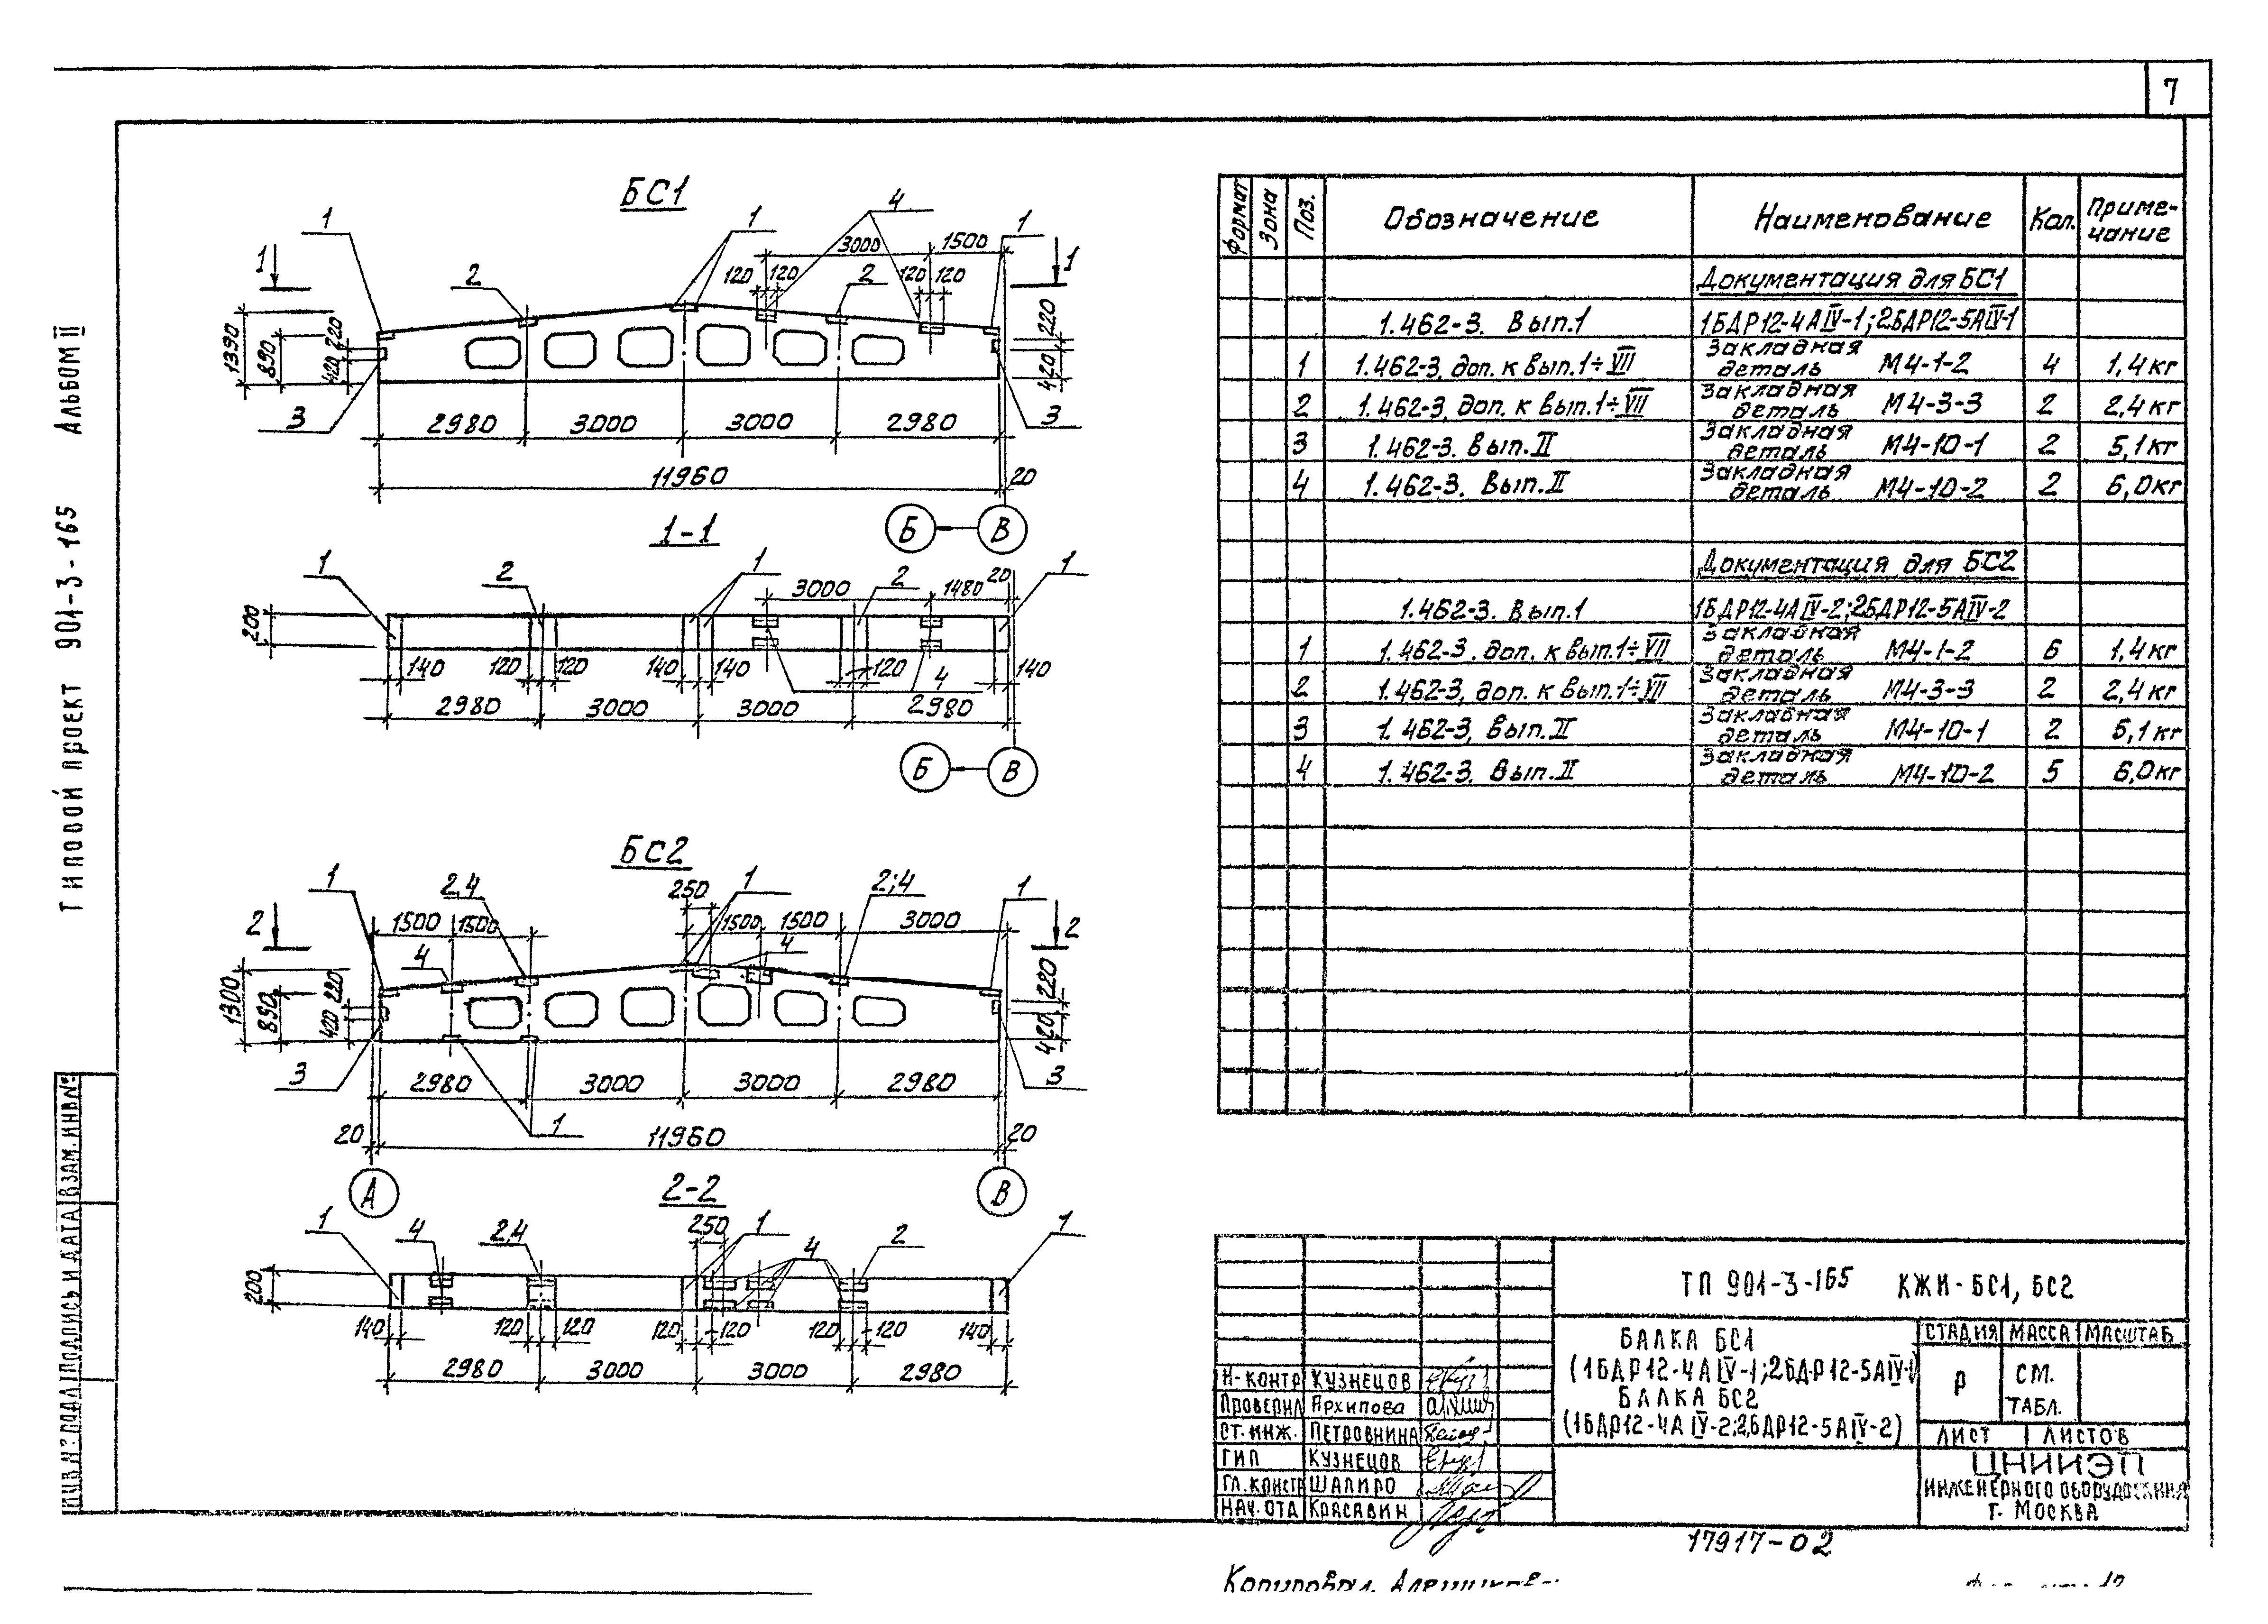 7
Типовой проект 904-3-165 Альбом II
БС1
1
2
1
4
1
3000
1500
120
120
2
120
120
1
1
1390
890
220
420
220
420
3
3
2980
3000
3000
2980
11960
20
Б
В
1-1
1
2
1
3000
2
1480
20
1
200
140
120
120
140
140
120
4
140
2980
3000
3000
2980
Б
В
БС2
1
2,4
250
1
2;4
1
2
2
1500
1500
1500
1500
3000
4
4
1300
890
220
420
220
420
3
3
2980
3000
3000
2980
1
20
11960
20
А
В
2-2
1
4
2,4
250
1
4
2
1
200
140
120
120
120
120
120
120
140
2980
3000
3000
2980
Формат Зона Поз. Обозначение Наименование Кол. Приме-чание
Документация для БС1
1.462-3. Вып.1 1БДР12-4АIV-1; 2БДР12-5АIV-1
1 1.462-3, доп. к вып.1÷VII Закладная деталь М4-1-2 4 1,4кг
2 1.462-3, доп. к вып.1÷VII Закладная деталь М4-3-3 2 2,4кг
3 1.462-3. Вып. II Закладная деталь М4-10-1 2 5,1кг
4 1.462-3. Вып. II Закладная деталь М4-10-2 2 6,0кг
Документация для БС2
1.462-3. Вып.1 1БДР12-4АIV-2; 2БДР12-5АIV-2
1 1.462-3. доп. к вып.1÷VII Закладная деталь М4-1-2 6 1,4кг
2 1.462-3, доп. к вып.1÷VII Закладная деталь М4-3-3 2 2,4кг
3 1.462-3, Вып. II Закладная деталь М4-10-1 2 5,1кг
4 1.462-3. Вып. II Закладная деталь М4-10-2 5 6,0кг
ТП 901-3-165 КЖИ-БС1, БС2
БАЛКА БС1
(1БДР12-4АIV-1; 2БДР12-5АIV-1)
БАЛКА БС2
(1БДР12-4АIV-2; 2БДР12-5АIV-2)
СТАДИЯ МАССА МАСШТАБ
Р СМ. ТАБЛ.
ЛИСТ ЛИСТОВ
ЦНИИЭП
ИНЖЕНЕРНОГО ОБОРУДОВАНИЯ
Г. МОСКВА
Н-КОНТР КУЗНЕЦОВ
ПРОВЕРИЛ Архипова
СТ. ИНЖ. ПЕТРОВНИНА
ГИП КУЗНЕЦОВ
ГЛ. КОНСТР ШАПИРО
НАЧ. ОТД КРАСАВИН
ИНВ. N° ПОДЛ ПОДПИСЬ И ДАТА ВЗАМ. ИНВ N°
17917-02
Копировал.